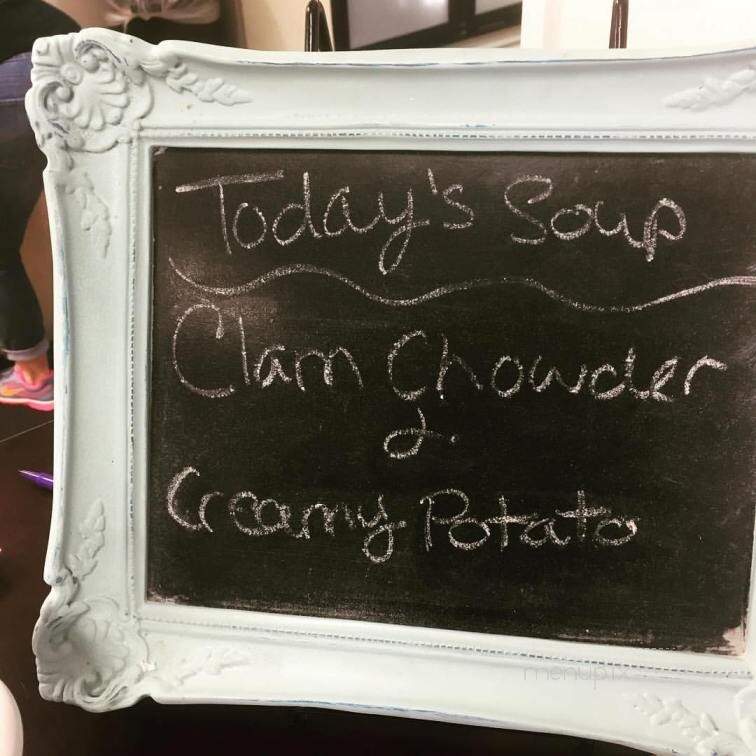 Today's Soup
Clam Chowder
&
Creamy Potato
menupix